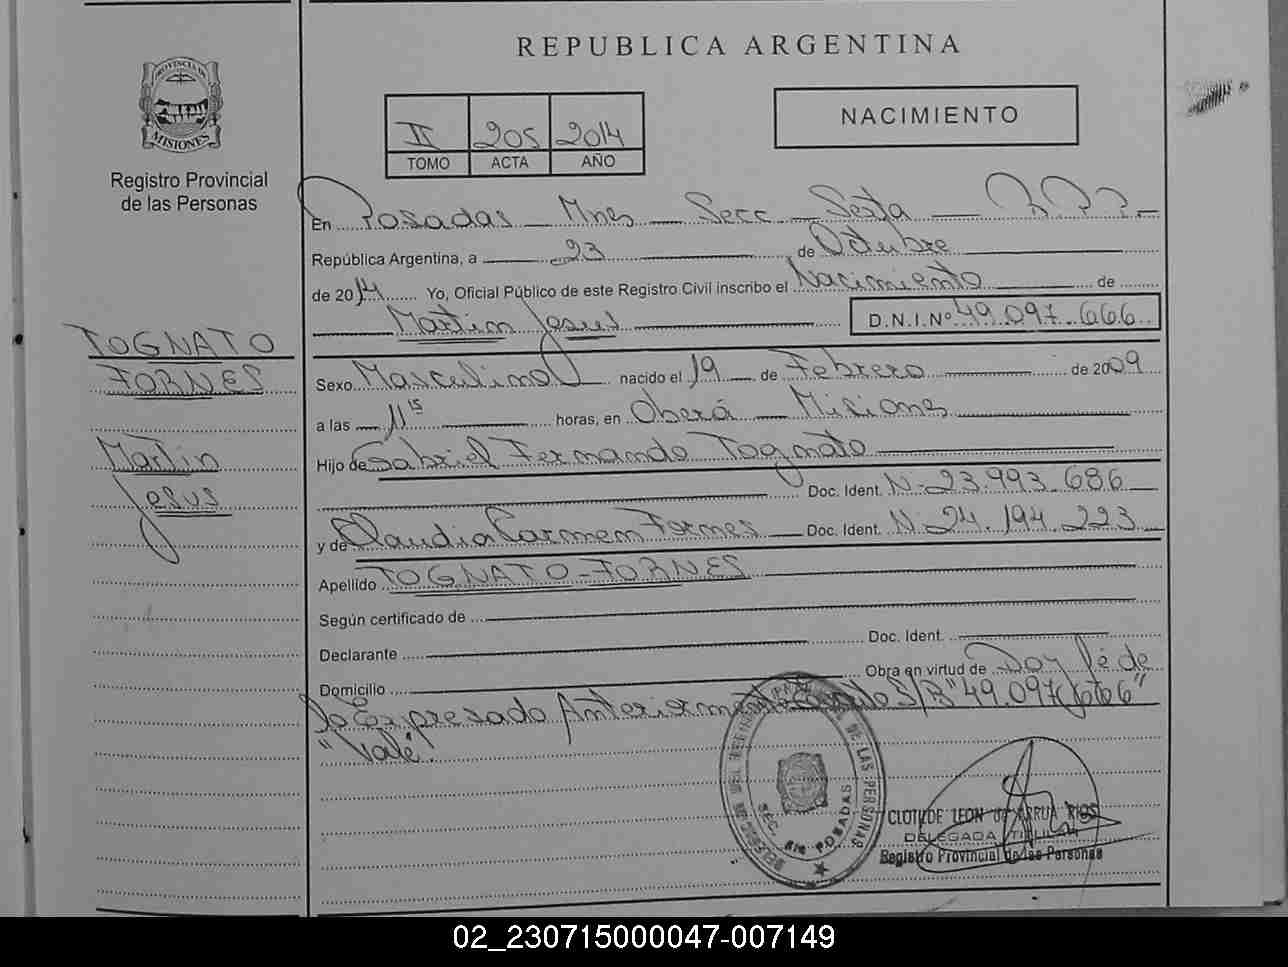 REPUBLICA ARGENTINA
PROVINCIA DE
MISIONES
Registro Provincial
de las Personas
II 205 2014
TOMO ACTA AÑO
NACIMIENTO
En Posadas Mnes Secc Sexta
República Argentina, a 23 de Octubre
de 2014 Yo, Oficial Público de este Registro Civil inscribo el Nacimiento de
Martin Jesus D.N.I.Nº 49.097.666
TOGNATO
FORNES
Martin
Jesus
Sexo Masculino nacido el 19 de Febrero de 2009
a las 11 15 horas, en Oberá Misiones
Hijo de Gabriel Fernando Tognato
Doc. Ident. Nº 23.993.686
y de Claudia Carmen Fornes Doc. Ident. Nº 24.194.223
Apellido TOGNATO-FORNES
Según certificado de
Declarante Doc. Ident.
Domicilio Obra en virtud de Doy fé de
lo Expresado Anteriormente S/B "49.097.666"
"Vale".
DE LAS PERSONAS
SEC. 6ta POSADAS
CLOTILDE LEON de ARRUA RIOS
DELEGADA TITULAR
Registro Provincial de las Personas
02_230715000047-007149